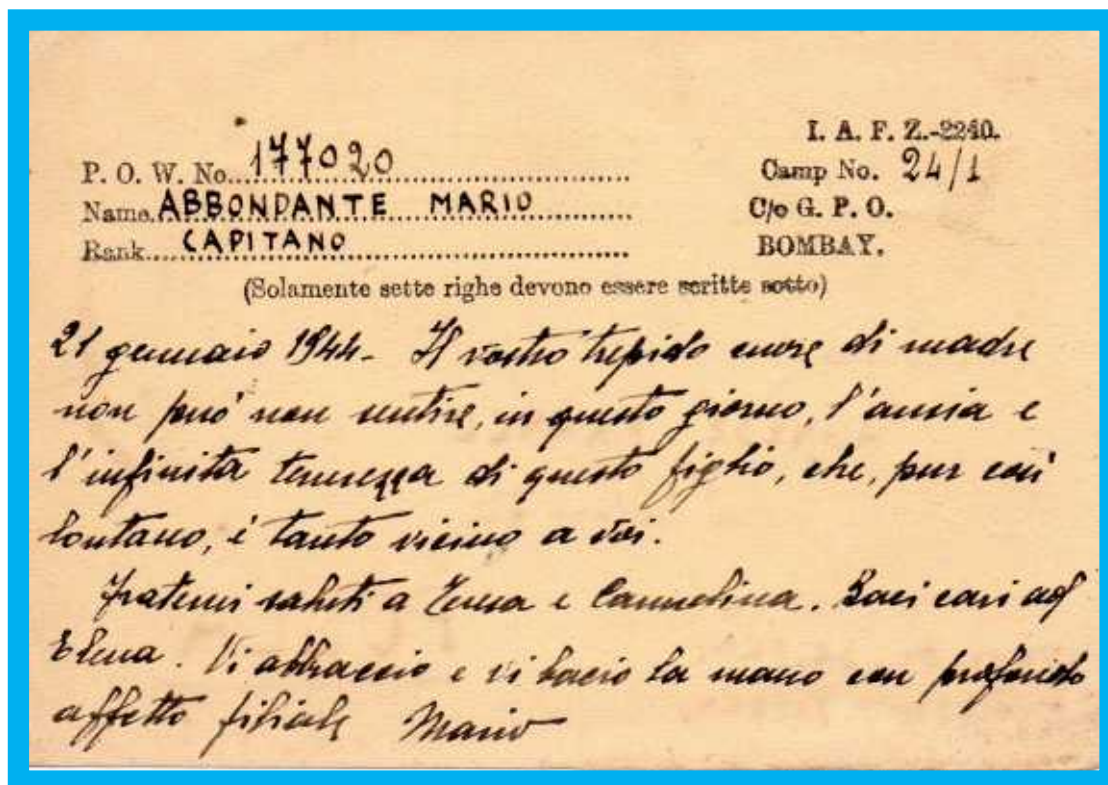 I. A. F. Z.-2240.
P. O. W. No. 177020
Camp No. 24/1
Name. ABBONDANTE MARIO
C/o G. P. O.
Rank. CAPITANO
BOMBAY.
(Solamente sette righe devono essere scritte sotto)
21 gennaio 1944 - Il vostro trepido cuore di madre
non può non sentire, in questo giorno, l'ansia e
l'infinita tenerezza di questo figlio, che, pur così
lontano, è tanto vicino a voi.
Fraterni saluti a Teresa e Carmelina. Baci cari ad
Elena. Vi abbraccio e vi bacio la mano con profondo
affetto filiale Mario